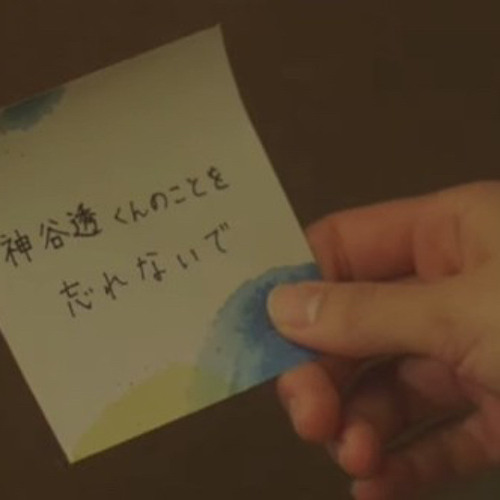 神谷透くんのことを
忘れないで